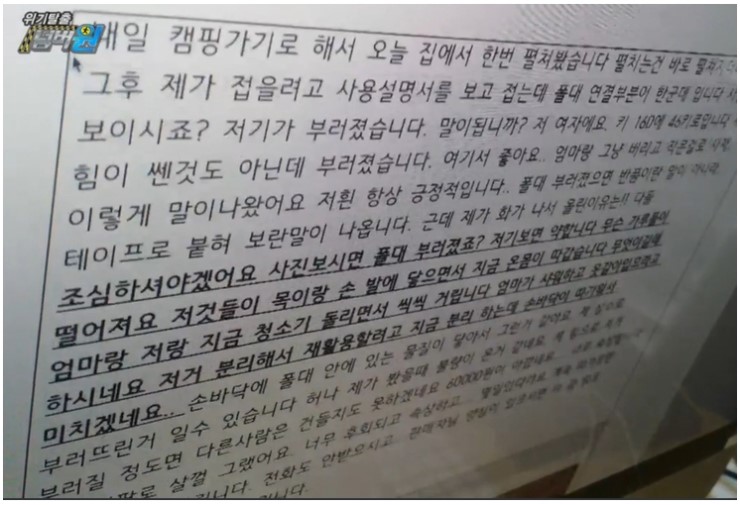 위기탈출
넘버원
내일 캠핑가기로 해서 오늘 집에서 한번 펼쳐봤습니다 펼치는건 바로 펼쳐지
그후 제가 접을려고 사용설명서를 보고 접는데 폴대 연결부분이 한군데 입니다
보이시죠? 저기가 부러졌습니다. 말이됩니까? 저 여자에요. 키 160에 46키로입니다
힘이 쎈것도 아닌데 부러졌습니다. 여기서 좋아요.. 엄마랑 그냥 버리고
이렇게 말이나왔어요 저흰 항상 긍정적입니다.. 폴대 부러졌으면 반품이란 말이 아니라
테이프로 붙혀 보란말이 나옵니다. 근데 제가 화가 나서 올린이유는!! 다들
조심하셔야겠어요 사진보시면 폴대 부러졌죠? 저기보면 약합니다 무슨 가루들이
떨어져요 저것들이 목이랑 손 발에 닿으면서 지금 온몸이 따갑습니다 무엇이길래
엄마랑 저랑 지금 청소기 돌리면서 씩씩 거립니다 엄마가 샤워하고 옷갈아입으라고
하시네요 저거 분리해서 재활용할려고 지금 분리 하는데 손바닥이 따가워서
미치겠네요.. 손바닥에 폴대 안에 있는 물질이 닿아서 그런거 같아요 제 실수로
부러뜨린거 일수 있습니다 허나 제가 봤을때 불량이 온거 같네요 제 힘으로
부러질 정도면 다른사람은 건들지도 못하겠네요 60000원이 아깝네요
살껄 그랬어요. 너무 후회되고 속상하고..
니다. 전화도 안받으시고. 판매자님 양심이 있으시면
니다.